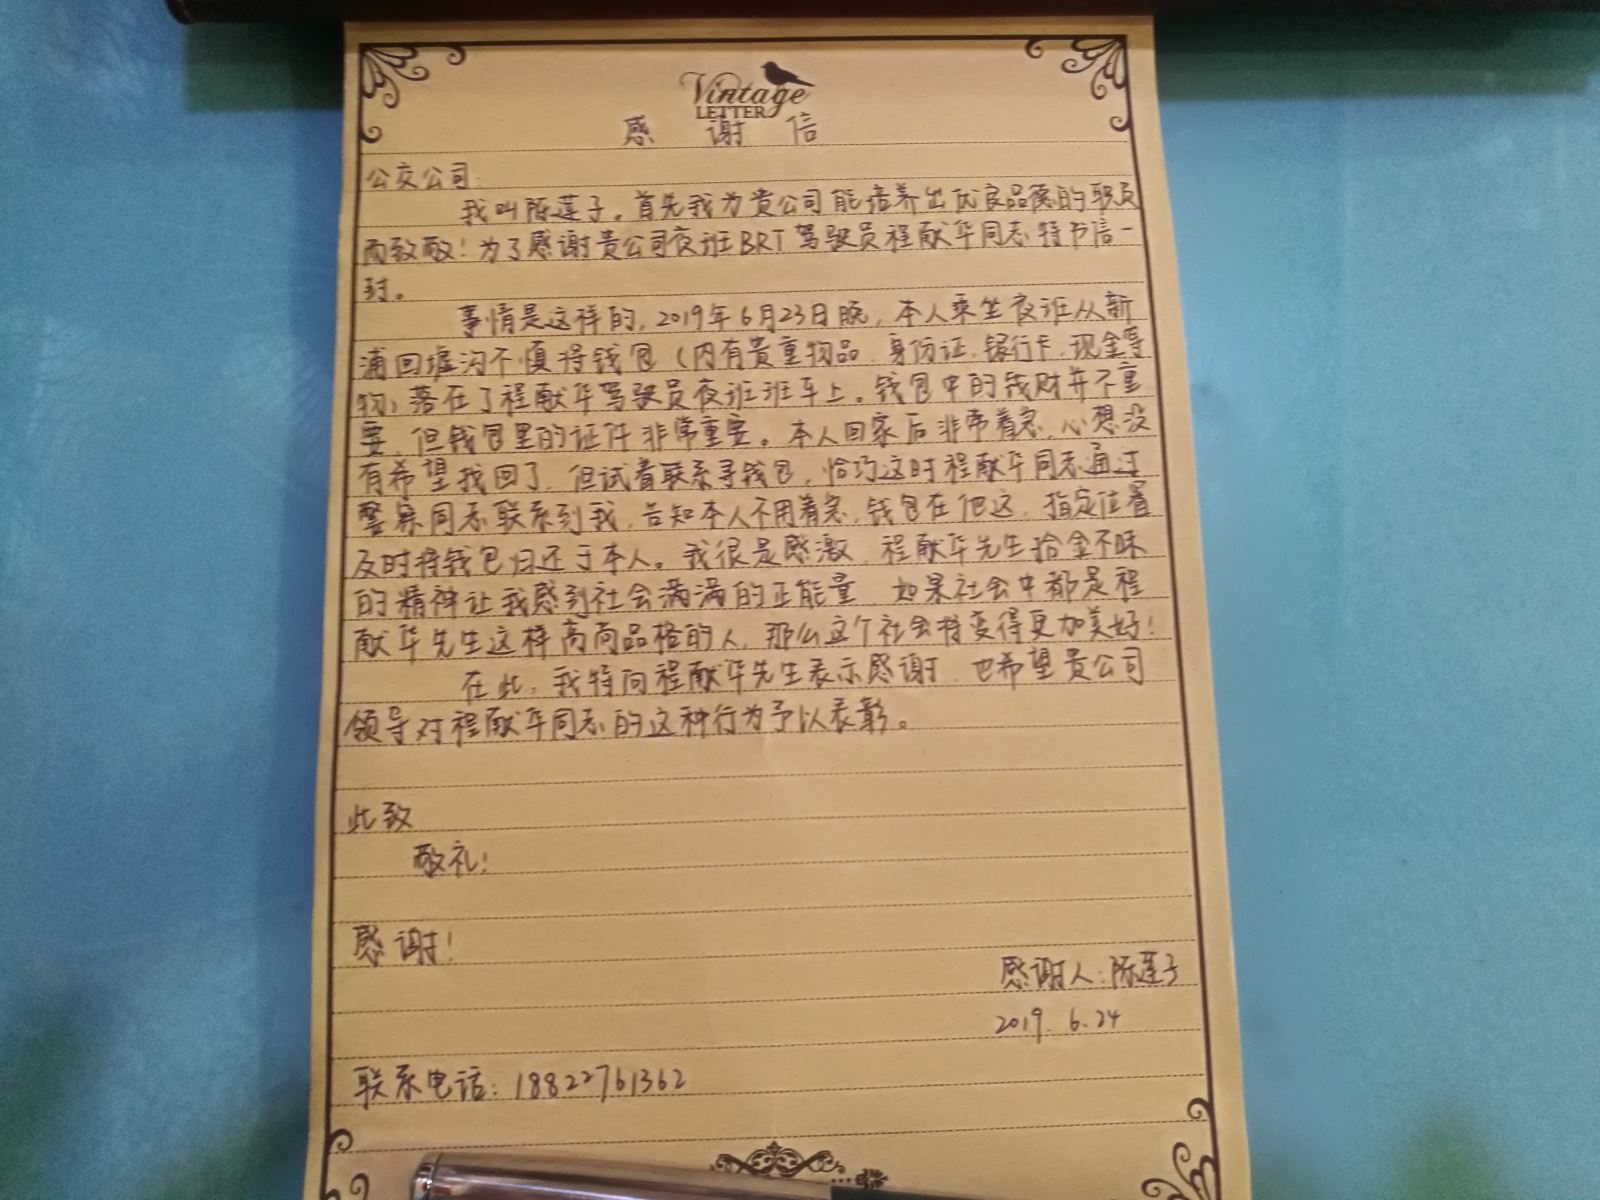 Vintage
LETTER
感 谢 信
公交公司:
我叫陈莲子。首先我为贵公司能培养出优良品德的职员
而致敬!为了感谢贵公司夜班BRT驾驶员程献华同志特书信一
封。
事情是这样的,2019年6月23日晚,本人乘坐夜班从新
浦回墟沟不慎将钱包(内有贵重物品、身份证、银行卡、现金等
物)落在了程献华驾驶员夜班班车上。钱包中的钱财并不重
要,但钱包里的证件非常重要。本人回家后非常着急,心想没
有希望找回了,但试着联系寻钱包,恰巧这时程献华同志通过
警察同志联系到我,告知本人不用着急,钱包在他这,指定位置
及时将钱包归还于本人。我很是感激,程献华先生拾金不昧
的精神让我感到社会满满的正能量,如果社会中都是程
献华先生这样高尚品格的人,那么这个社会将变得更加美好!
在此,我特向程献华先生表示感谢,也希望贵公司
领导对程献华同志的这种行为予以表彰。
此致
敬礼!
感谢!
感谢人:陈莲子
2019.6.24
联系电话:18822761362